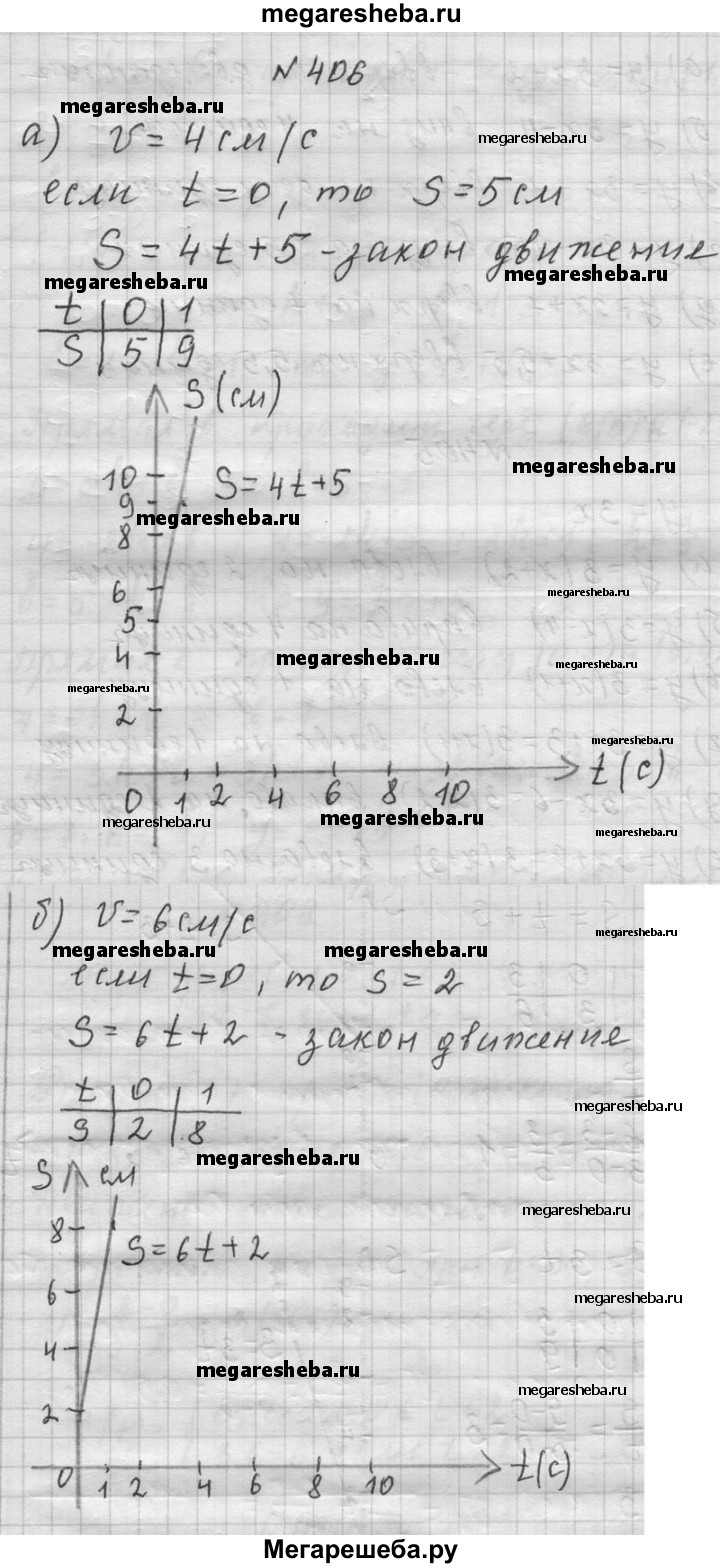 megaresheba.ru
N 406
megaresheba.ru
а) v = 4 см/с
megaresheba.ru
если t = 0, то S = 5 см
S = 4t + 5 - закон движение
megaresheba.ru
megaresheba.ru
t | 0 | 1
S | 5 | 9
S (см)
megaresheba.ru
10
S = 4t + 5
9
megaresheba.ru
8
6
megaresheba.ru
5
4
megaresheba.ru
megaresheba.ru
megaresheba.ru
2
megaresheba.ru
t (с)
0 1 2 4 6 8 10
megaresheba.ru
megaresheba.ru
megaresheba.ru
б) v = 6 см/с
megaresheba.ru
megaresheba.ru
megaresheba.ru
если t = 0, то S = 2
S = 6t + 2 - закон движение
t | 0 | 1
megaresheba.ru
S | 2 | 8
megaresheba.ru
S см
megaresheba.ru
8
S = 6t + 2
6
megaresheba.ru
4
megaresheba.ru
megaresheba.ru
2
t (с)
0 1 2 4 6 8 10
Мегарешеба.ру